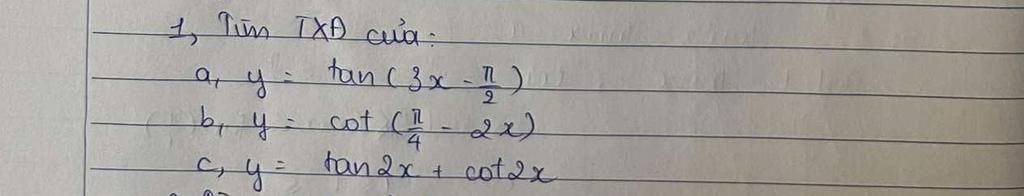 1, Tìm TXĐ của:
a, y = tan(3x - π/2)
b, y = cot(π/4 - 2x)
c, y = tan2x + cot2x